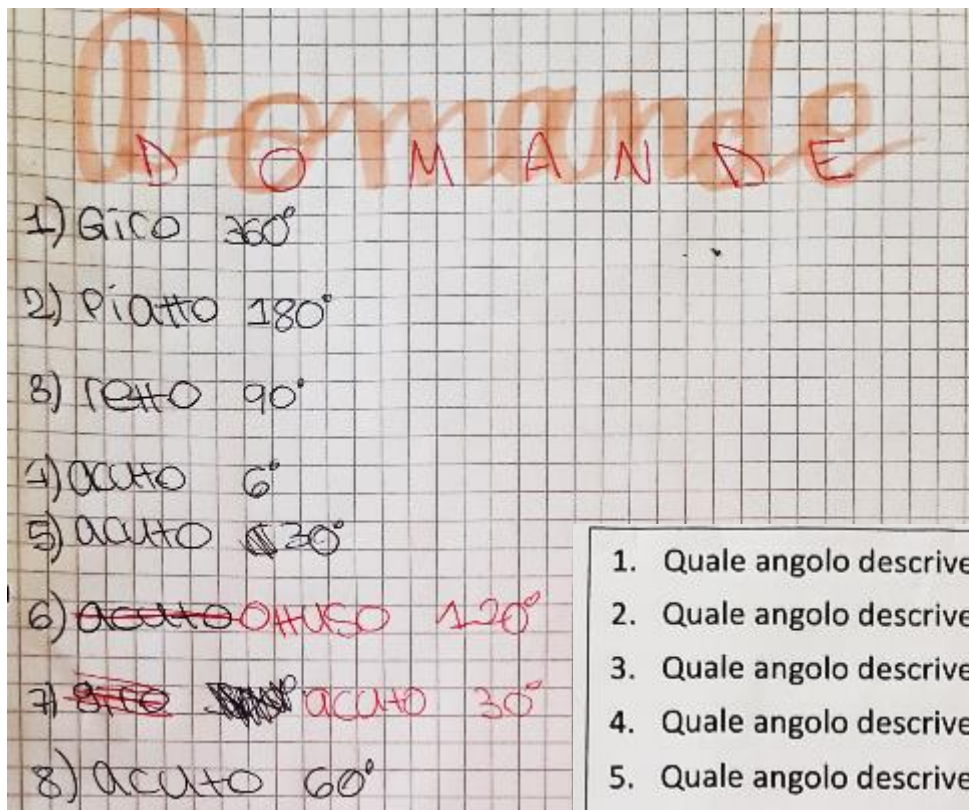 Domande
DOMANDE
1) Giro 360°
2) Piatto 180°
3) retto 90°
4) acuto 6°
5) acuto 30°
6) acuto Ottuso 120°
7) acuto 30°
8) acuto 60°
1. Quale angolo descrive
2. Quale angolo descrive
3. Quale angolo descrive
4. Quale angolo descrive
5. Quale angolo descrive